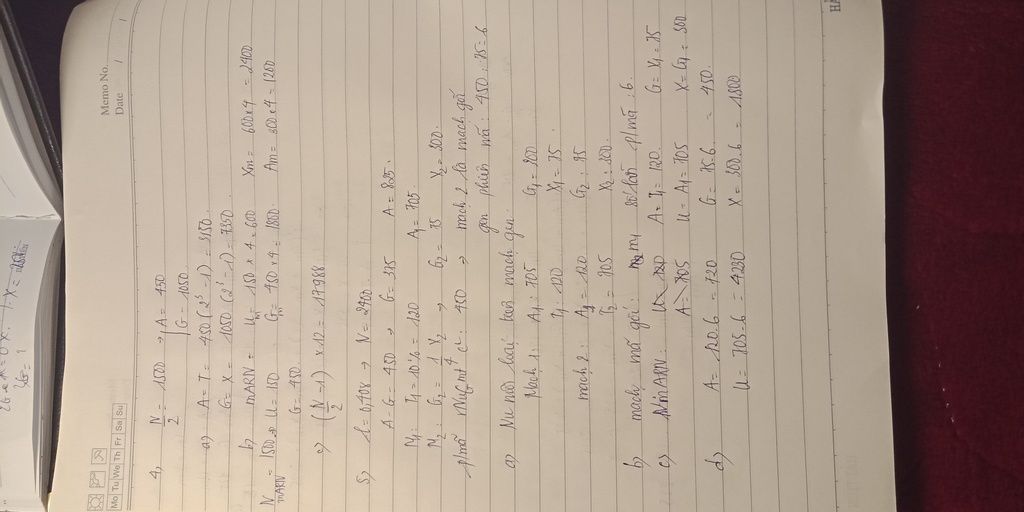 Memo No.
Date / /
Mo Tu We Th Fr Sa Su
4, N/2 = 1500 → A = 450
G = 1050
a) A = T = 450 (2³ - 1) = 3150.
G = X = 1050 (2³ - 1) = 7350.
b) mARN = Um = 150 × 4 = 600 Xm = 600×4 = 2400
N mARN = 1500 → U = 150 Gm = 450 × 4 = 1800 Am = 300 × 4 = 1200
G = 450
c) (N/2 - 1) × 12 = 17988
5) l = 0,408 → N = 2400
A - G = 450 → G = 375 A = 825.
M1: T1 = 10% = 120 A1 = 705.
M2: G2 = 1/4 X2 → G2 = 75 X2 = 300.
p/mã mtcc: 450 → mạch 2 là mạch gốc
gen phiên mã: 450 : 75 = 6
a) Nu mỗi loại trên mạch gen.
Mạch 1: A1: 705 G1 = 300
T1: 120 X1 = 75.
mạch 2: A2 = 120 G2: 75
T2 = 705 X2: 300.
b) mạch mã gốc: m1 số lần p/mã: 6.
c) NmARN: A = T1 = 120. G = X1 = 75
A = 705 U = A1 = 705 X = G1 = 300
d) A = 120.6 = 720 G = 75.6 = 450.
U = 705.6 = 4230 X = 300.6 = 1800